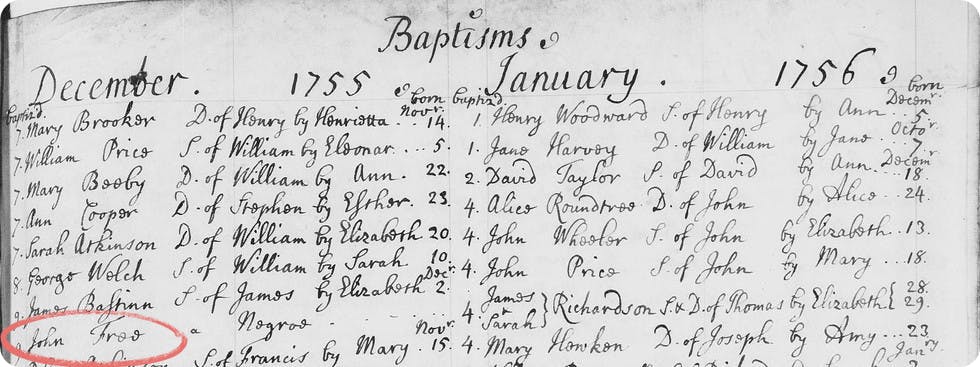 Baptisms
December. 1755
baptiz'd born
7. Mary Brooker D. of Henry by Henrietta Novr. 14.
7. William Price S. of William by Eleonar .... 5.
7. Mary Beeby D. of William by Ann. 22.
7. Ann Cooper D. of Stephen by Esther. 23.
7. Sarah Atkinson D. of William by Elizabeth 20.
8. George Welch S. of William by Sarah 10.
9. James Bastinn S. of James by Elizabeth Decr. 2.
John Free a Negroe
S. of Francis by Mary Novr. 15.
January. 1756
baptiz'd born
1. Henry Woodward S. of Henry by Ann Decemr. 5.
1. Jane Harvey D. of William by Jane Octor. 7.
2. David Taylor S. of David by Ann Decemr. 18.
4. Alice Roundtree D. of John by Alice .. 24.
4. John Wheeler S. of John by Elizabeth .. 13.
4. John Price S. of John by Mary ... 18.
4. James & Sarah } Richardson S. & D. of Thomas by Elizabeth { 28. 29.
4. Mary Hewken D. of Joseph by Amy .. 23.
Janry.